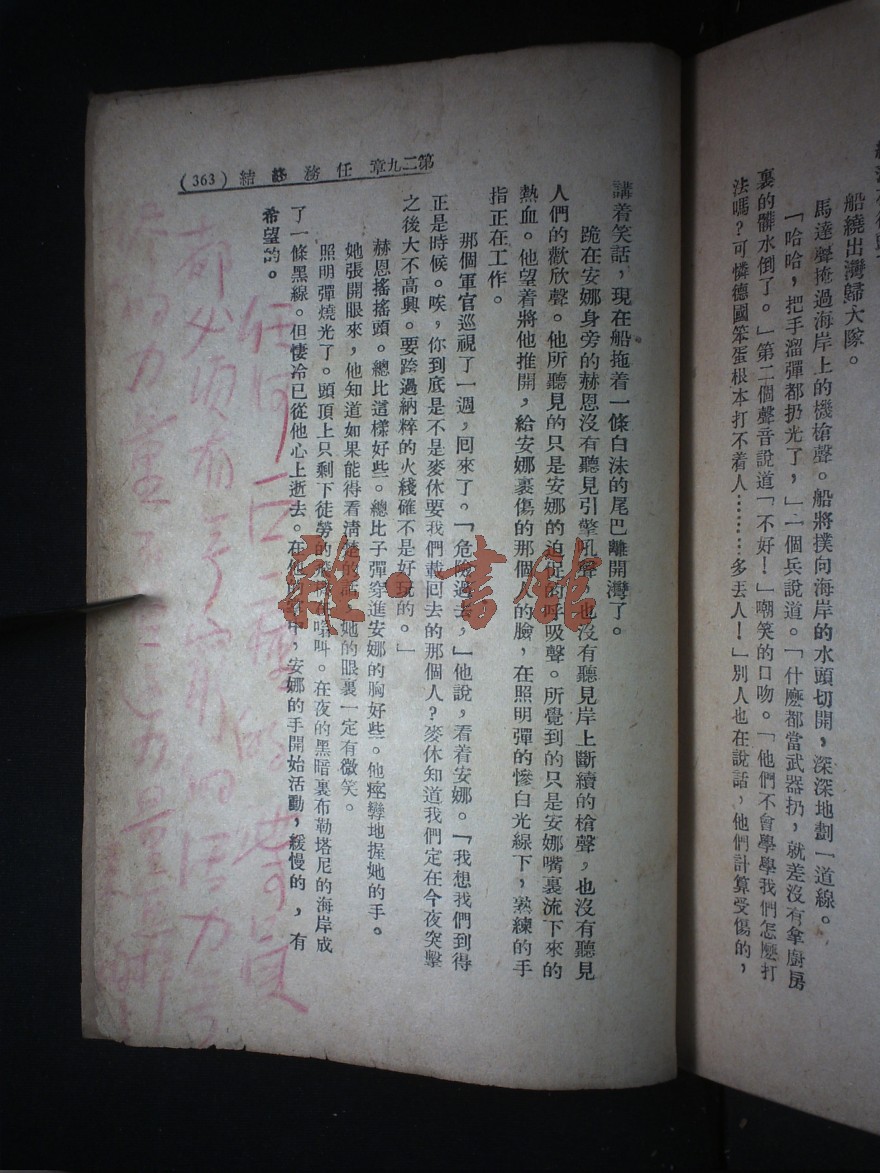 船繞出灣歸大隊。
馬達聲掩過海岸上的機槍聲。船將撲向海岸的水頭切開，深深地劃一道線。
「哈哈，把手溜彈都扔光了，」一個兵說道。「什麼都當武器扔，就差沒有拿廚房
裏的髒水倒了。」第二個聲音說道「不好！」嘲笑的口吻。「他們不會學學我們怎麼打
法嗎？可憐德國笨蛋根本打不着人………多丟人！」別人也在說話，他們計算受傷的，
第二九章 任務終結 (363)
講着笑話，現在船拖着一條白沫的尾巴離開灣了。
跪在安娜身旁的赫恩沒有聽見引擎吼聲，也沒有聽見岸上斷續的槍聲，也沒有聽見
人們的歡欣聲。他所聽見的只是安娜的迫促的呼吸聲。所覺到的只是安娜嘴裏流下來的
熱血。他望着將他推開，給安娜裹傷的那個的臉，在照明彈的慘白光線下，熟練的手
指正在工作。
那個軍官巡視了一週，回來了。「危險過去，」他說，看着安娜。「我想我們到得
正是時候。唉，你到底是不是麥休要我們載回去的那個人？麥休知道我們定在今夜突擊
之後大不高興。要跨過納粹的火綫確不是好玩的。」
赫恩搖搖頭。總比這樣好些。總比子彈穿進安娜的胸好些。他痙攣地握她的手。
她張開眼來，他知道如果能得看清楚的話她的眼裏一定有微笑。
照明彈燒光了。頭頂上只剩下徒勞的 叫。在夜的黑暗裏布勒塔尼的海岸成
了一條黑線。但悽冷已從他心上逝去。在他的 中，安娜的手開始活動，緩慢的，有
希望的。
任何一 種的 員
都必須有
力量
雜·書館